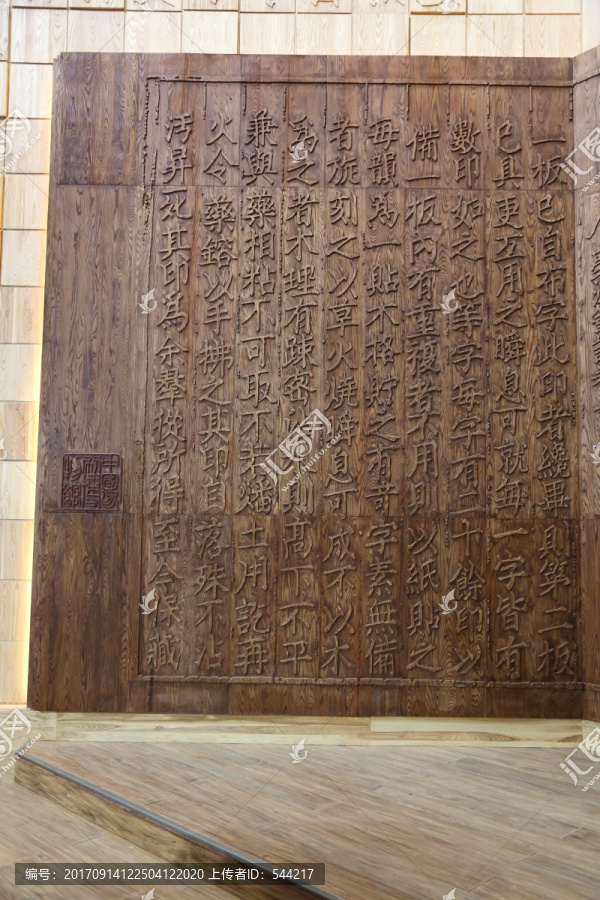 一板已自布字此印者纔畢則第二板
已具更互用之瞬息可就每一字皆有
數印如之也等字每字有二十餘印以
備一板內有重複者不用則以紙貼之
每韻爲一貼木格貯之有奇字素無備
者旋刻之以草火燒瞬息可成不以木
爲之者木理有疎密沾水則高下不平
兼與藥相粘不可取不若燔土用訖再
火令藥鎔以手拂之其印自落殊不沾
汚昇死其印爲余羣從所得至今保藏
汇图网
www.huitu.com
编号:20170914122504122020 上传者ID:544217